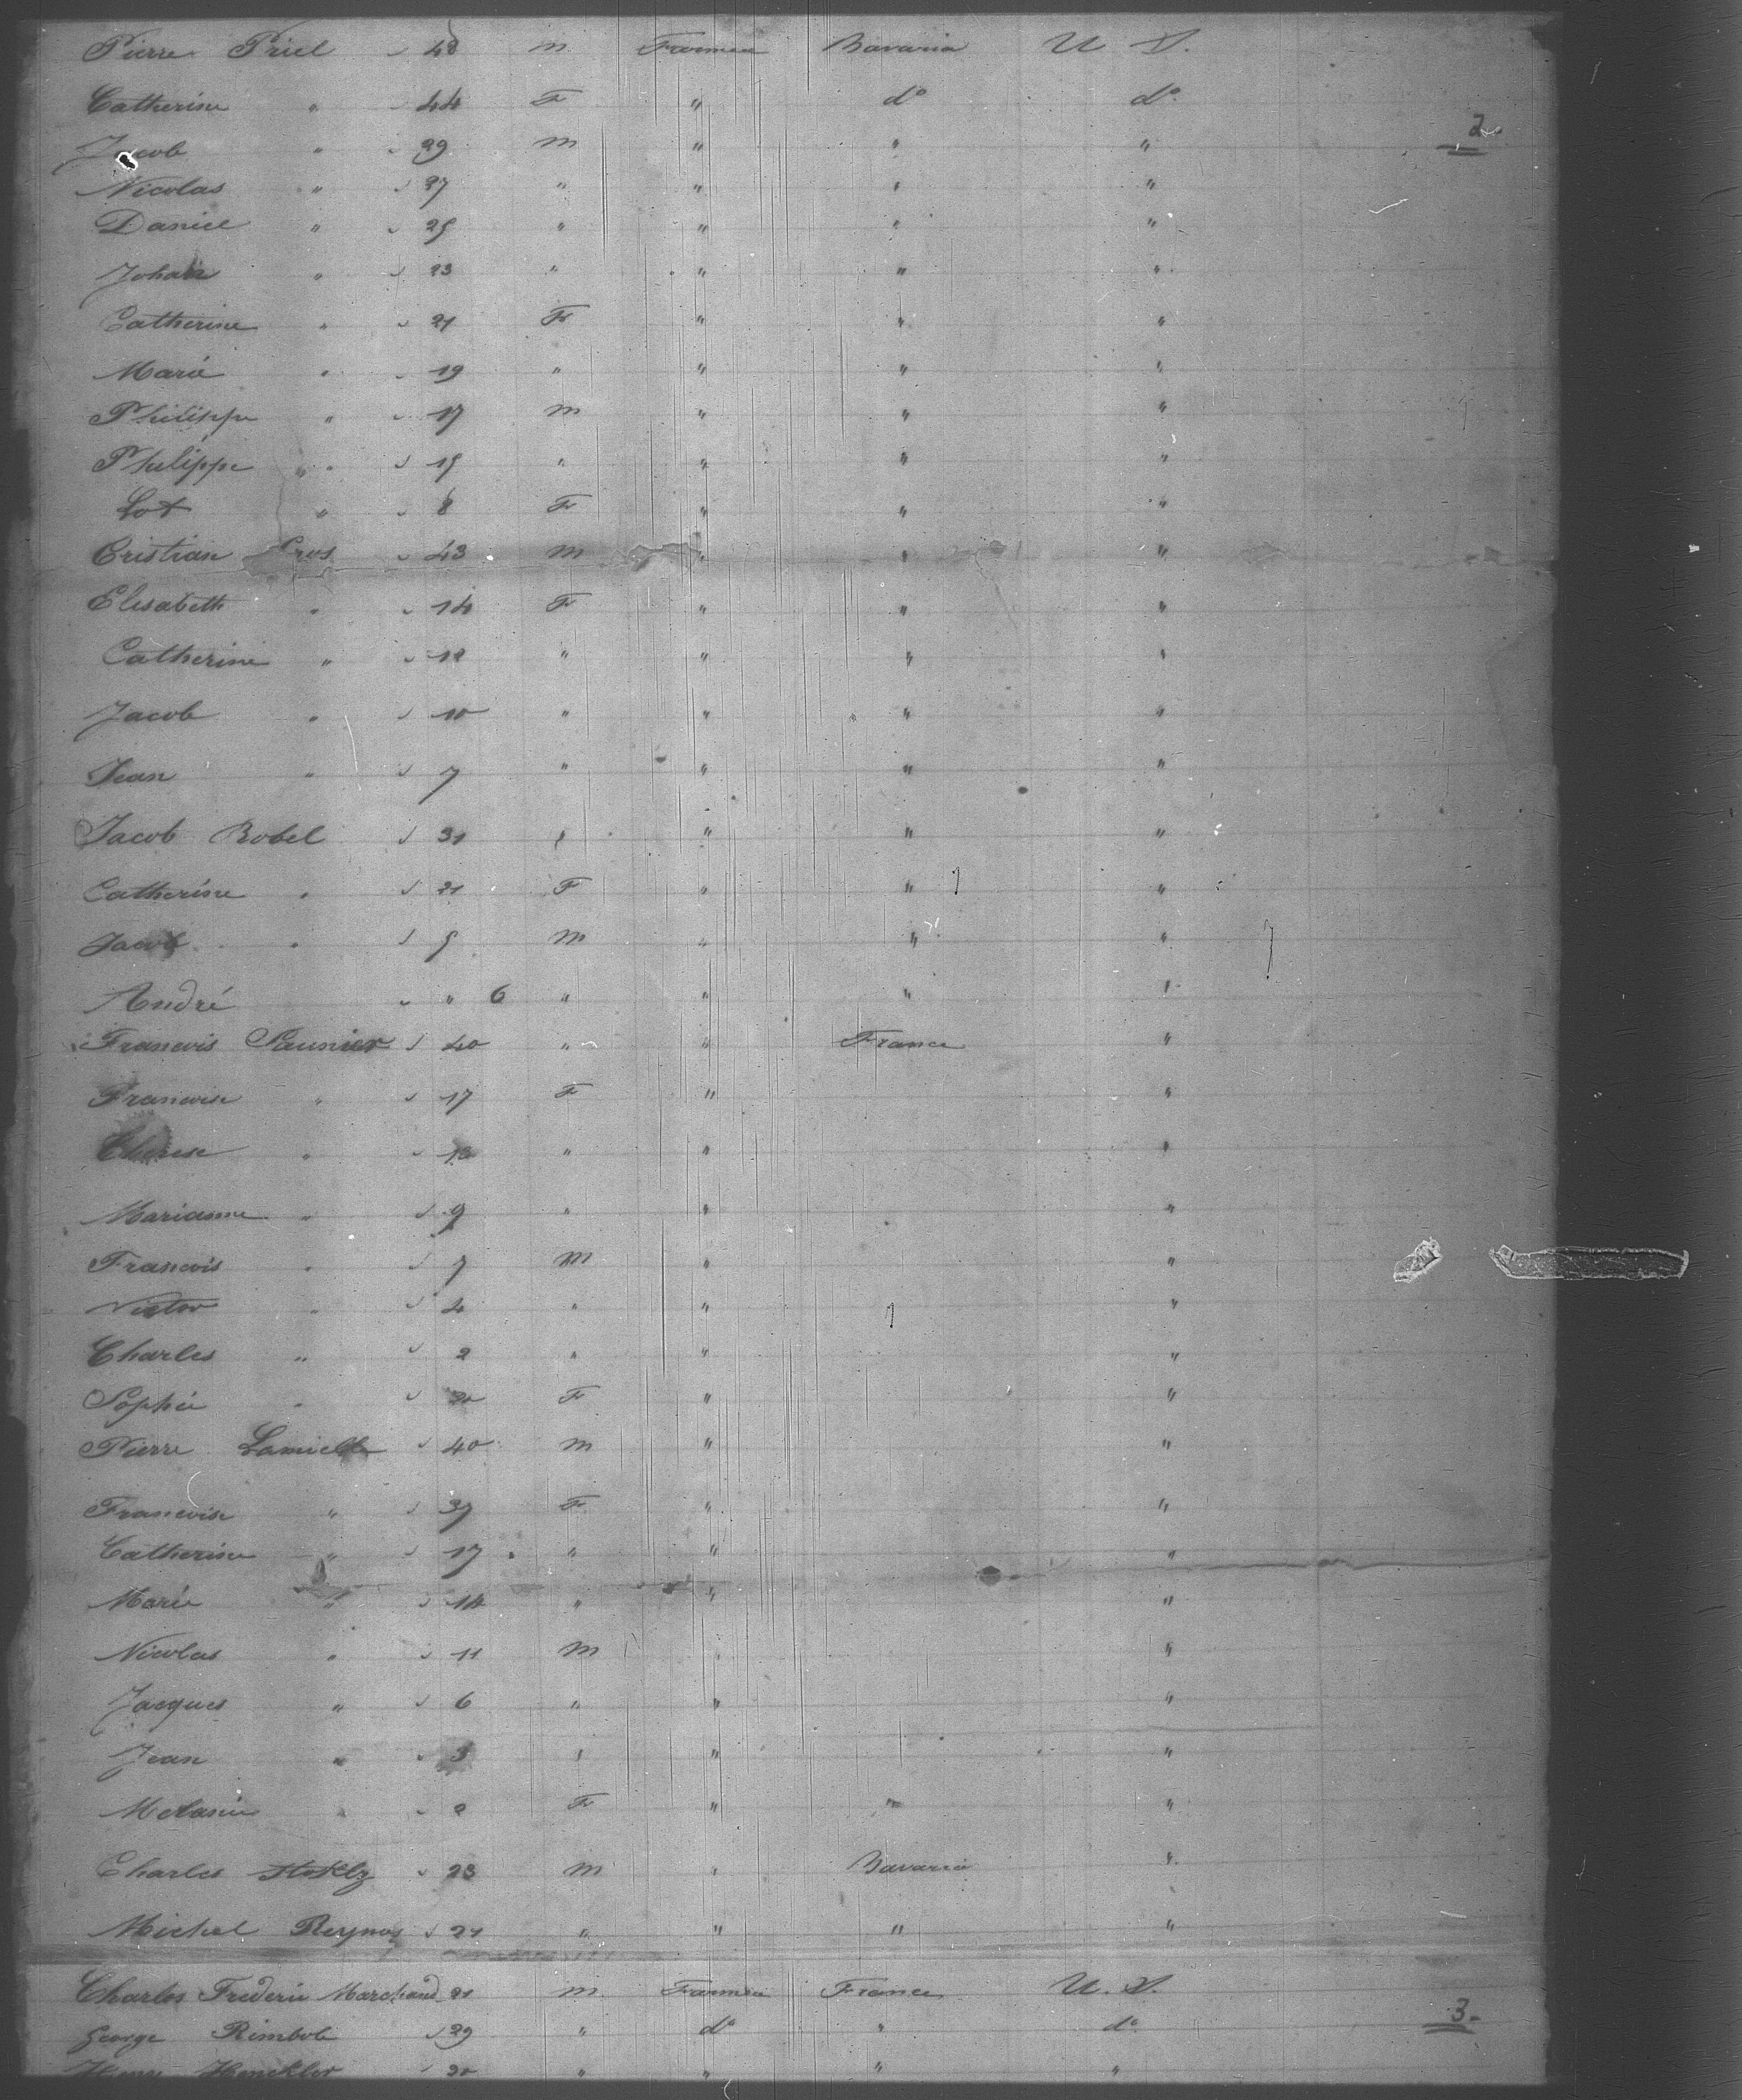 Pierre Priel 48 m Farmer Bavaria U S.
Catherine " 44 F " do do
2.
Jacob " 29 m " " "
Nicolas " 27 " " " "
Daniel " 25 " " " "
Johan " 23 " " " "
Catherine " 21 F " " "
Marie " 19 " " " "
Philippe " 17 m " " "
Philippe " 15 " " " "
Lot " 8 F " " "
Cristian Gros 43 m " " "
Elisabeth " 14 F " " "
Catherine " 12 " " " "
Jacob " 10 " " " "
Jean " 7 " " " "
Jacob Bobel 31 " " " "
Catherine " 21 F " " "
Jacob " 5 m " " "
André " 6 " " " "
Francois Saunier 40 " " France "
Francoise " 17 F " "
Therese " " " "
Marianne " 9 " " "
Francois " 7 m " "
Victor " 4 " " "
Charles " 2 " " "
Sophie " 20 F " "
Pierre 40 m " "
Francoise " 37 F " "
Catherine " 17 " " "
Marie " 14 " " "
Nicolas " 11 m " "
Jacques " 6 " " "
Jean " 3 " " "
Melanie " 2 F " " "
Charles 23 m " Bavaria "
Michel 21 " " " "
Charles Frederic Marchand 21 m Farmer France U. S.
George Rimbob 29 " do " do
3.
Henckler 20 " " " "